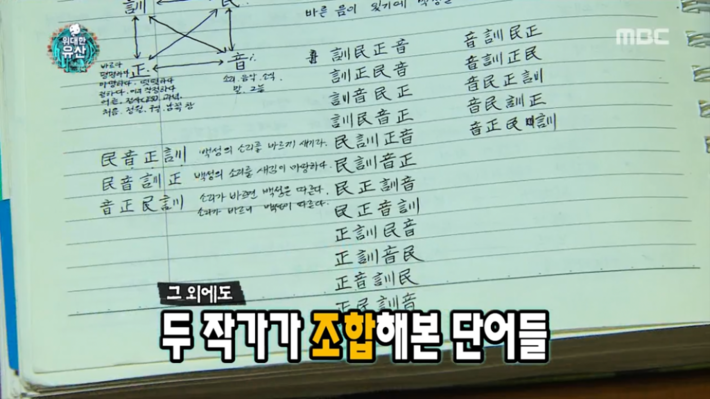 위대한
유산
MBC
訓 民
바른 음이 있기에 백성을
바르다
正 音
소리, 음악, 소식
訓民正音
訓正民音
訓音民正
訓民音正
民訓正音
民訓音正
民正訓音
民正音訓
正訓民音
正訓音民
正音訓民
正民訓音
音訓民正
音訓正民
音民正訓
音民訓正
音正民訓
民音正訓 백성의 소리를 바르게 새기라.
民音訓正 백성의 소리를 새김이 마땅하다.
音正民訓 소리가 바르면 백성은 따른다.
소리가 바르니 백성이 따른다.
그 외에도
두 작가가 조합해본 단어들